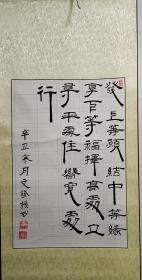 發上等願結中等緣
享下等福擇高處立
尋平處住嚮寬處
行
辛丑寒月文